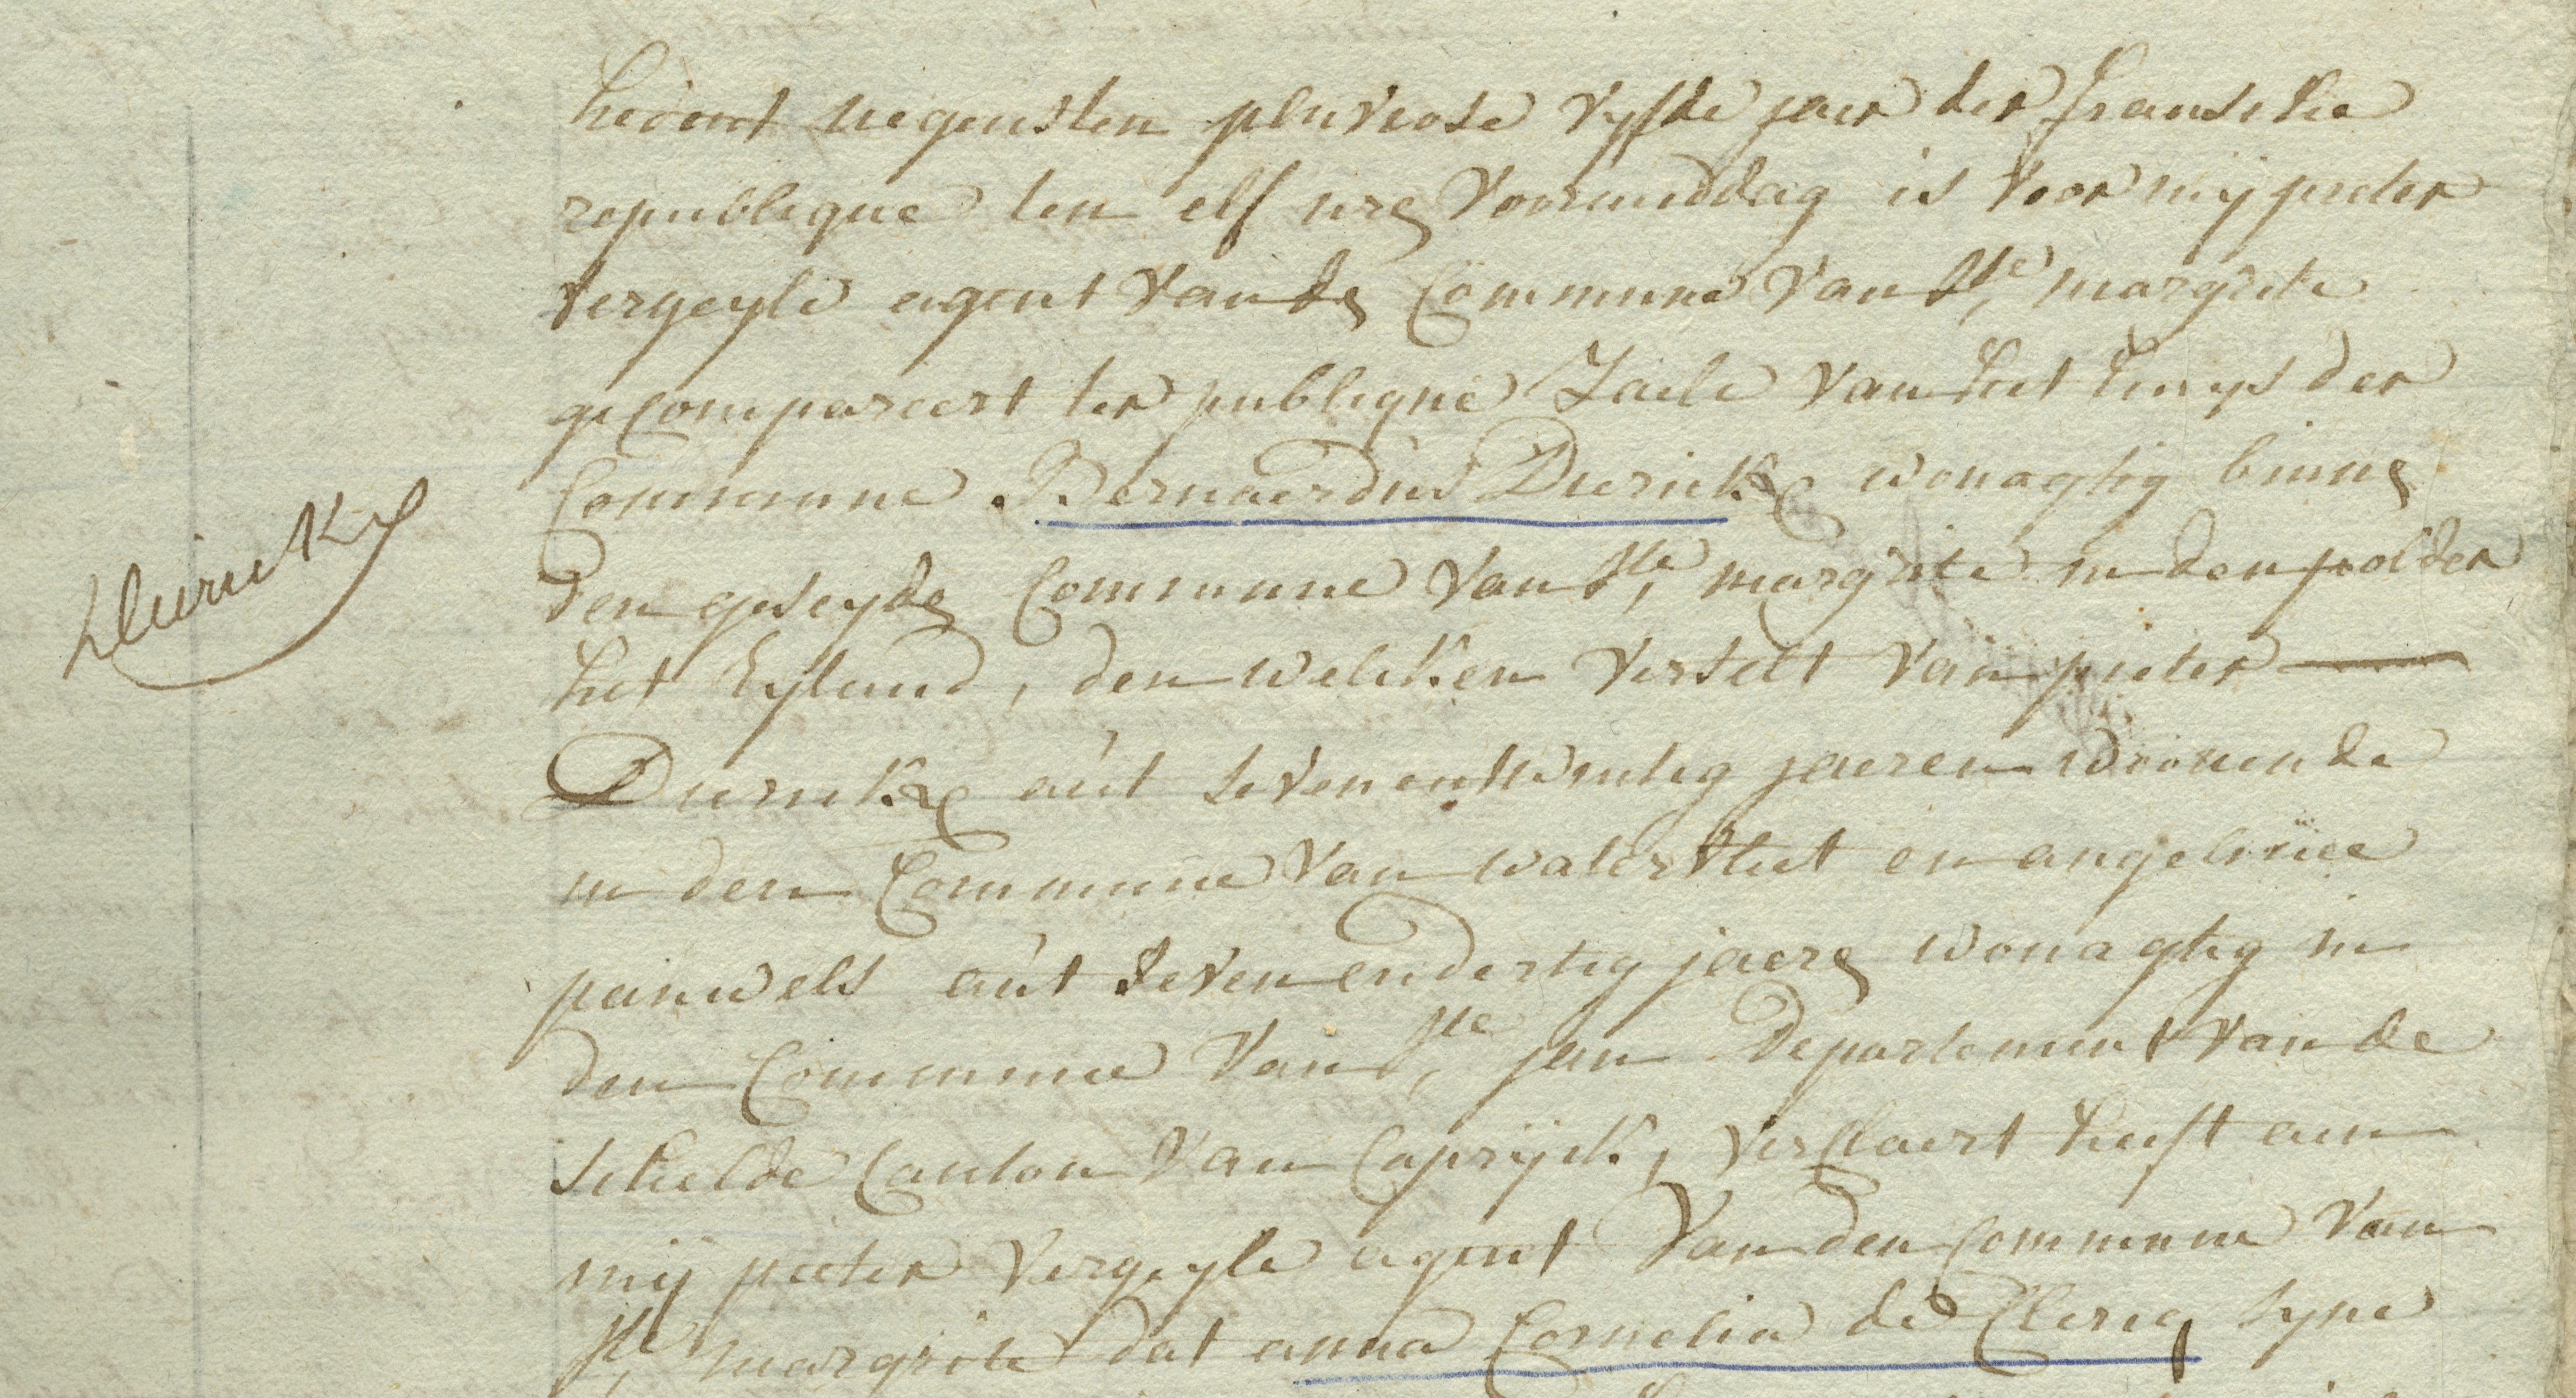 hedent negensten pluviose vyfde jaer der fransche
republique ten elf ure voormiddag is voor mij pieter
vergeyle agent van de Commune van Ste, margrite
gecompareert ter publique Zaele van het huys der
Commune Bernaerdus Durinckx wonagtig binne
Durinckx
den geseyde Commune van Ste, margrite in den polder
het Eyland, den welcken verselt van pieter
Durinckx aut sevenentwintig jaeren woonende
in den Commune van watervliet en angelinee
pauwels aut sevenendertig jaere wonagtig in
den Commune van Ste, jan Departement van de
schelde Canton van Caprijck, verclaert heeft aen
mij pieter vergeyle agent van den Commune van
Ste, margrite dat anna Cornelia de Clercq syne